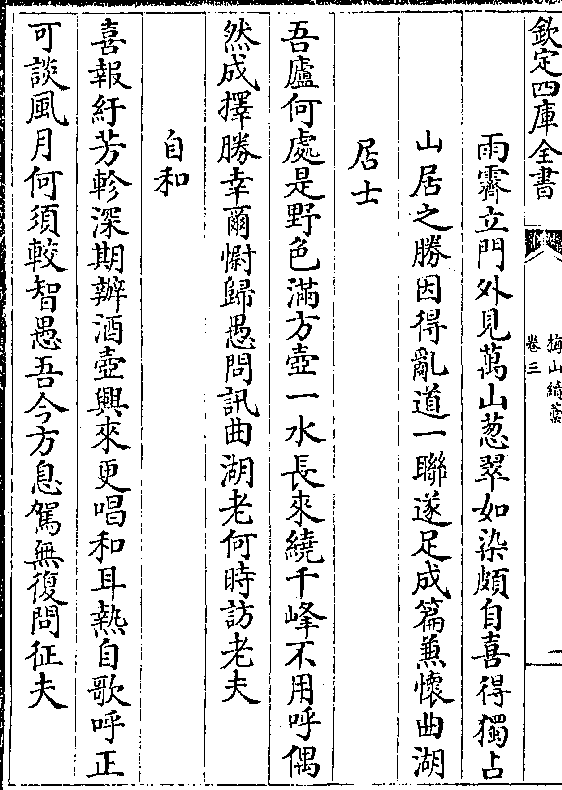 欽定四庫全書
梅山續藁
卷三
一
雨霽立門外見萬山葱翠如染頗自喜得獨占
山居之勝因得亂道一聯遂足成篇兼懷曲湖
居士
吾廬何處是野色滿方壺一水長來繞千峰不用呼偶
然成擇勝幸爾慰歸愚問訊曲湖老何時訪老夫
自和
喜報紆芳軫深期辦酒壺興來更唱和耳熱自歌呼正
可談風月何須較智愚吾今方息駕無復問征夫